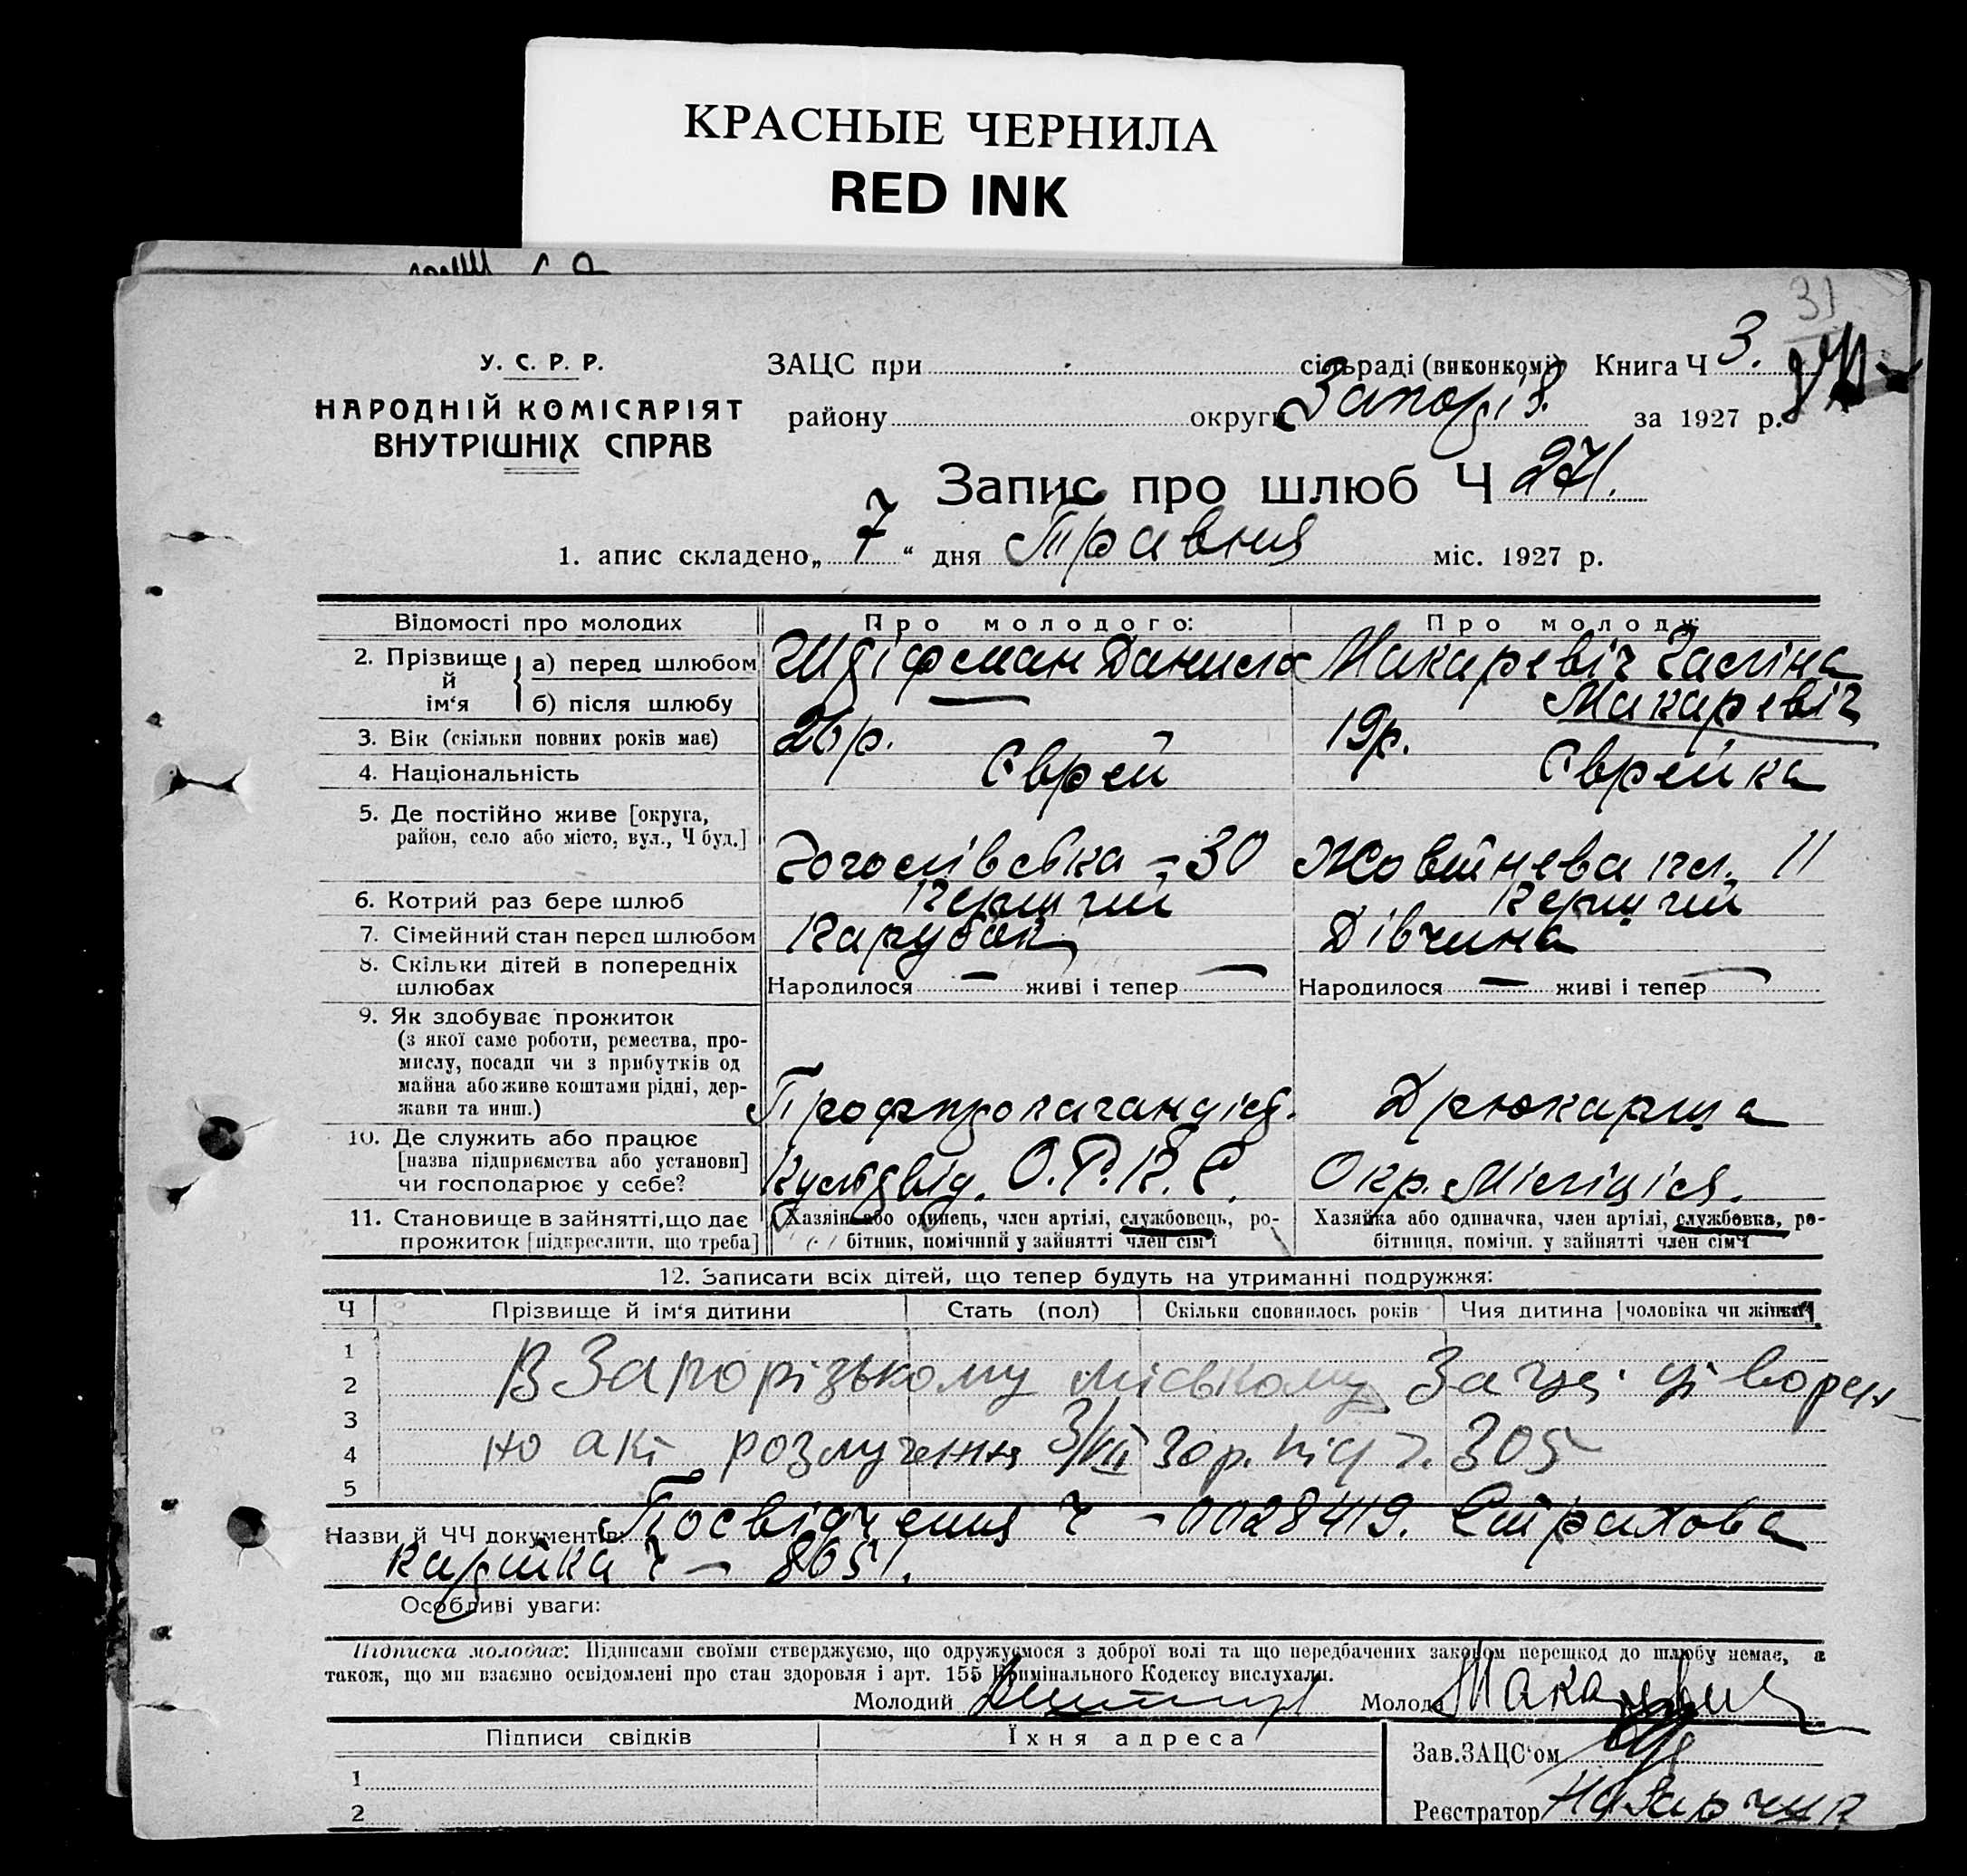 КРАСНЫЕ ЧЕРНИЛА
RED INK
31
У. С. Р. Р.
НАРОДНІЙ КОМІСАРІЯТ
ВНУТРІШНІХ СПРАВ
ЗАЦС при сільраді (виконкомі) Книга Ч 3.
району округи Запоріз. за 1927 р.
Запис про шлюб Ч 271.
1. апис складено „ 7 “ дня Травня міс. 1927 р.
Відомості про молодих
Про молодого:
Про молоду:
2. Прізвище й ім‘я
а) перед шлюбом
Данило
Макаревіч Галіна
б) після шлюбу
Макаревіч
3. Вік (скільки повних років має)
26 р.
19 р.
4. Національність
Єврей
Єврейка
5. Де постійно живе [округа, район, село або місто, вул., Ч буд.]
Гоголівська - 30
Жовтнева пл. 11
6. Котрий раз бере шлюб
Перший
Перший
7. Сімейний стан перед шлюбом
Парубок
Дівчина
8. Скільки дітей в попередніх шлюбах
Народилося — живі і тепер —
Народилося — живі і тепер —
9. Як здобуває прожиток
(з якої саме роботи, ремества, про-
мислу, посади чи з прибутків од
майна або живе коштами рідні, дер-
жави та инш.)
Профпропагандіст.
Друкарша
10. Де служить або працює
[назва підприємства або установи]
чи господарює у себе?
Культвід. О.Р.П.С.
Окр. Міліція.
11. Становище в зайнятті, що дає
прожиток [підкреслити, що треба]
Хазяїн або одинець, член артілі, службовець, ро-
бітник, помічний у зайнятті член сім‘ї
Хазяйка або одиначка, член артілі, службовка, ро-
бітниця, помічн. у зайнятті член сім‘ї
12. Записати всіх дітей, що тепер будуть на утриманні подружжя:
Ч
Прізвище й ім‘я дитини
Стать (пол)
Скільки сповнилось років
Чия дитина [чоловіка чи жінки]
1
2
3
4
5
В Запорізькому міському Загсі створен
но акт розлучення 3/VII 30 р. під ч. 305
Назви й ЧЧ документів: Посвідчення ч - 0028419. Страхова
картка ч - 8651.
Особливі уваги:
Підписка молодих: Підписами своїми стверджуємо, що одружуємося з доброї волі та що передбачених законом перешкод до шлюбу немає, а
також, що ми взаємно освідомлені про стан здоровля і арт. 155 Кримінального Кодексу вислухали.
Молодий
Молода Макаревич
Підписи свідків
Їхня адреса
1
2
Зав.ЗАЦС‘ом
Реєстратор Назарчук